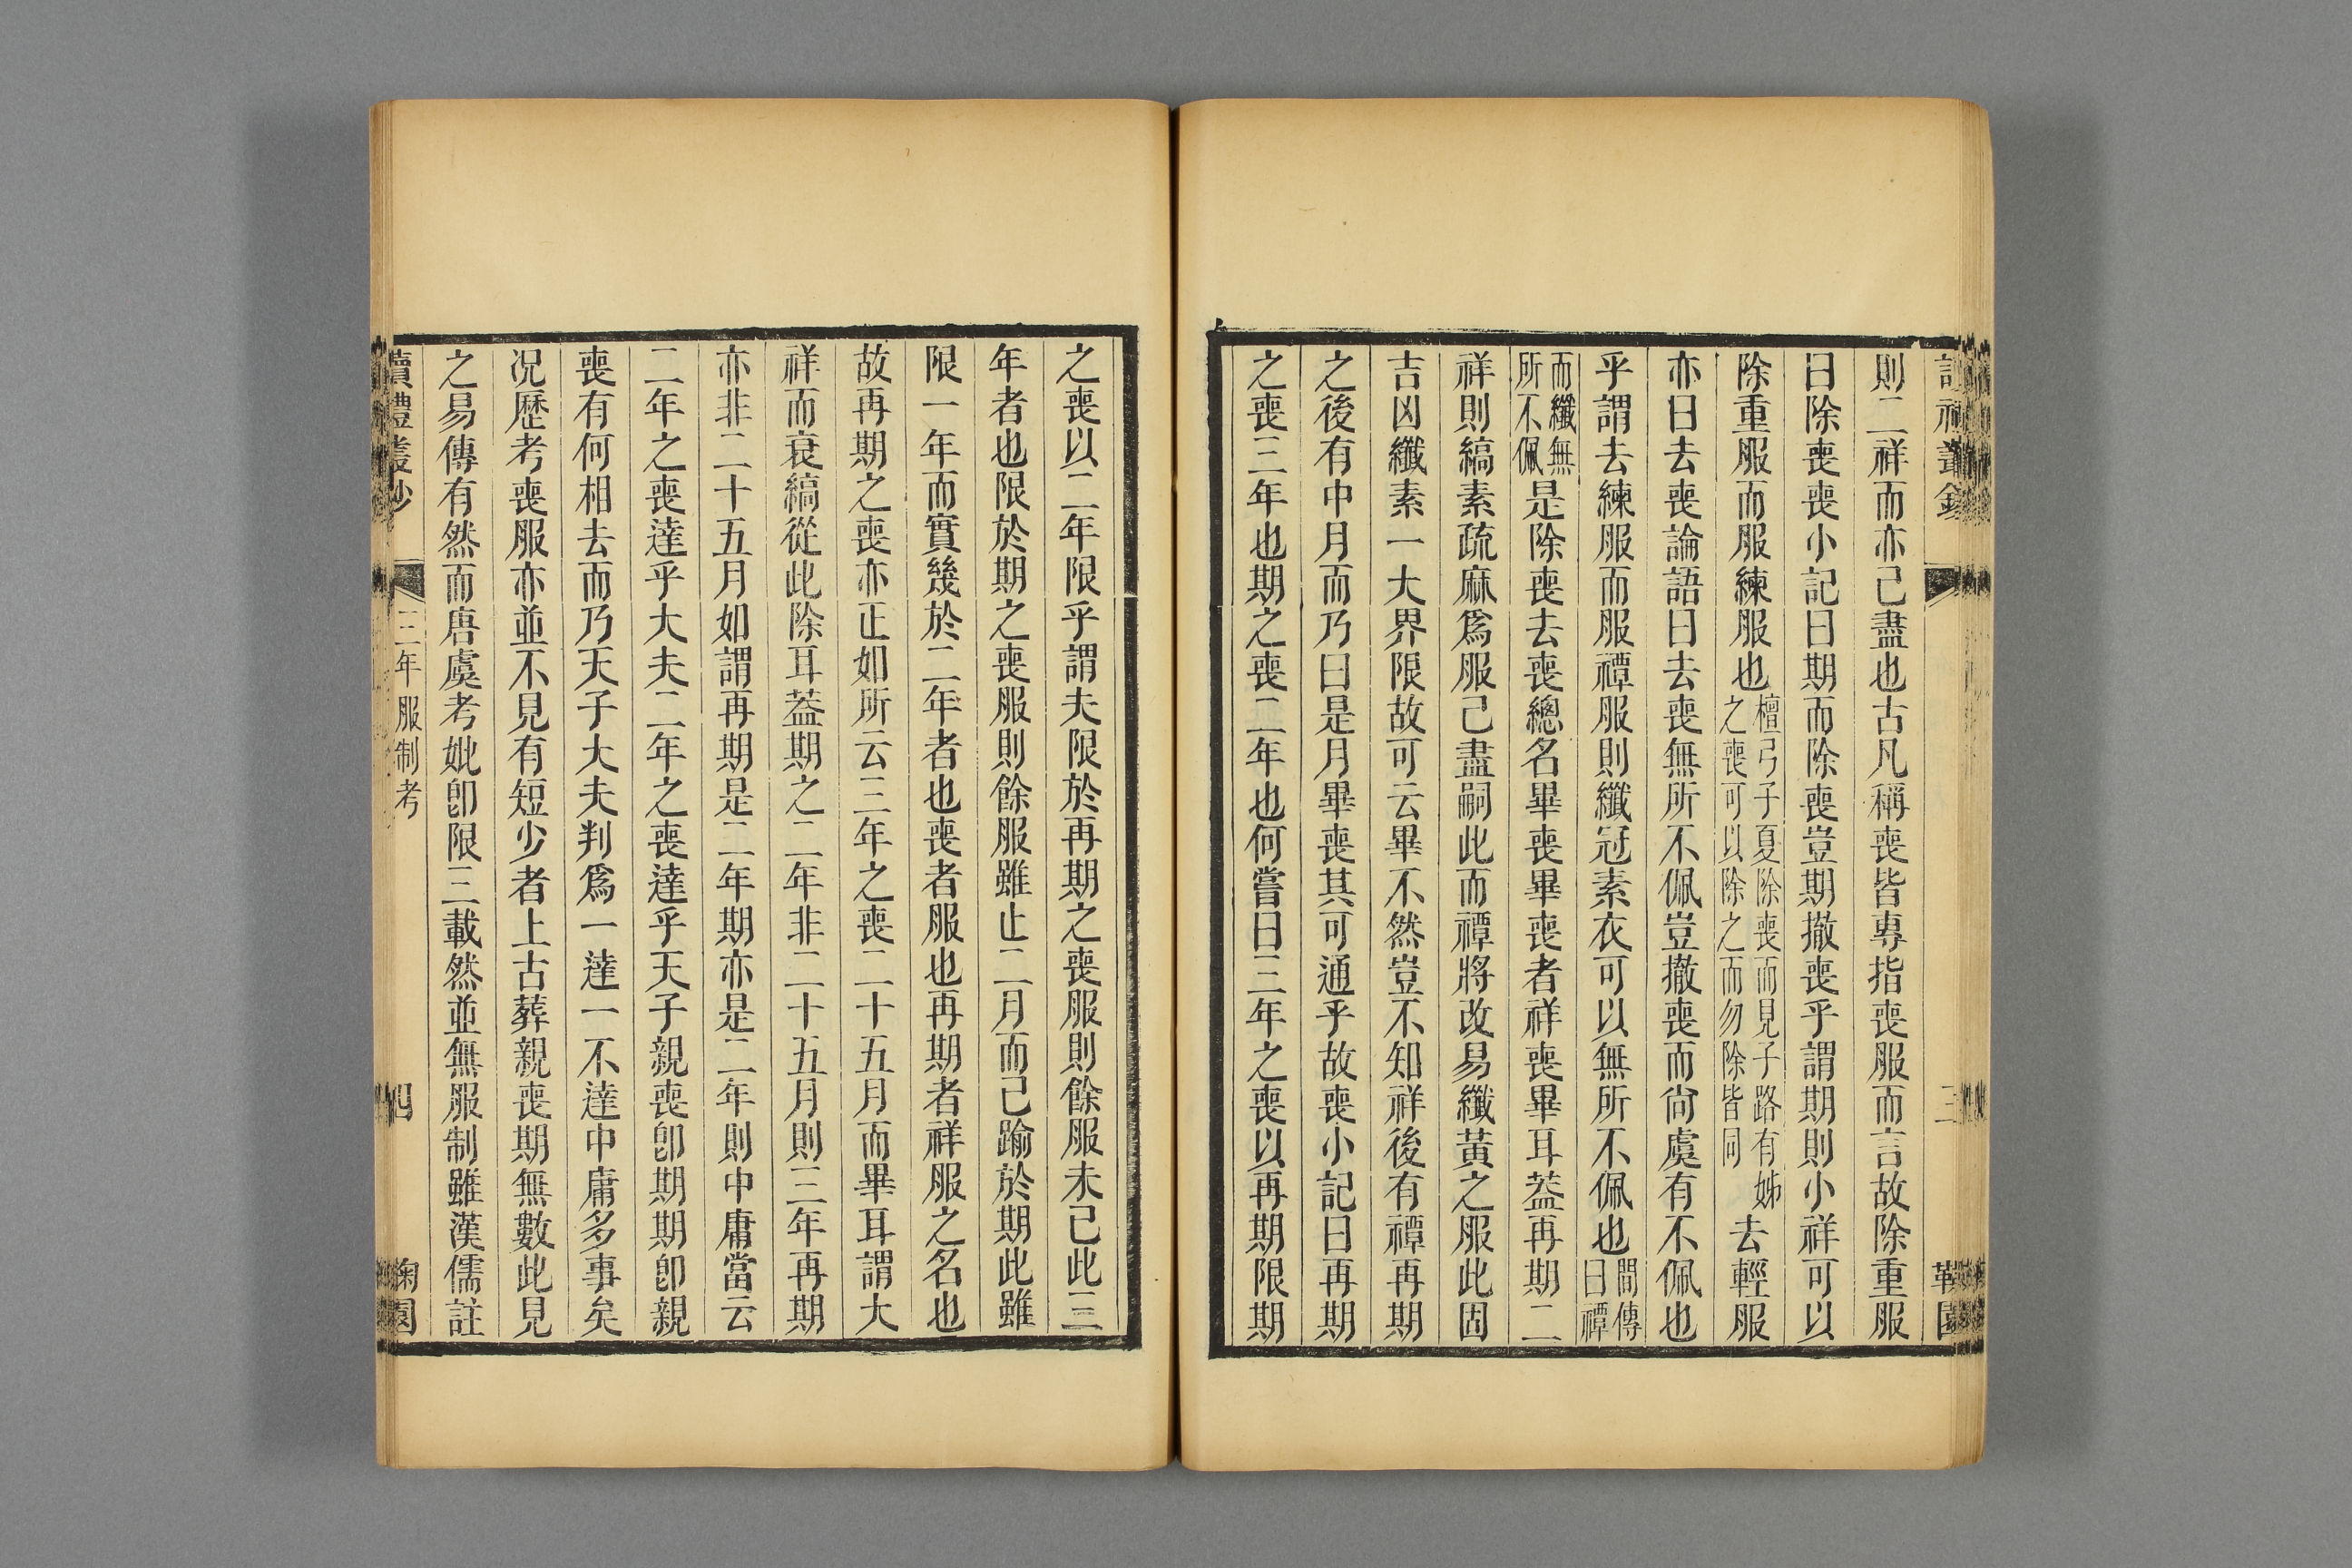 則二祥而亦己盡也古凡稱喪皆專指喪服而言故除重服
曰除喪喪小記曰期而除喪豈期撤喪乎謂期則小祥可以
除重服而服練服也檀弓子夏除喪而見子路有姊之喪可以除之而勿除皆同去輕服
亦曰去喪論語曰去喪無所不佩豈撤喪而尙虞有不佩也
乎謂去練服而服禫服則纖冠素衣可以無所不佩也間傳曰禫
而纖無所不佩是除喪去喪總名畢喪畢喪者祥喪畢耳葢再期二
祥則縞素疏麻爲服己盡嗣此而禫將改易纖黃之服此固
吉凶纖素一大界限故可云畢不然豈不知祥後有禫再期
之後有中月而乃曰是月畢喪其可通乎故喪小記曰再期
之喪三年也期之喪二年也何嘗曰三年之喪以再期限期
之喪以二年限乎謂夫限於再期之喪服則餘服未己此三
年者也限於期之喪服則餘服雖止二月而己踰於期此雖
限一年而實幾於二年者也喪者服也再期者祥服之名也
故再期之喪亦正如所云三年之喪二十五月而畢耳謂大
祥而衰縞從此除耳葢期之二年非二十五月則三年再期
亦非二十五月如謂再期是二年期亦是二年則中庸當云
二年之喪達乎大夫二年之喪達乎天子親喪卽期期卽親
喪有何相去而乃天子大夫判爲一達一不達中庸多事矣
况歷考喪服亦並不見有短少者上古葬親喪期無數此見
之易傳有然而唐虞考妣卽限三載然並無服制雖漢儒註
讀禮叢鈔
三年服制考
四
鞠園